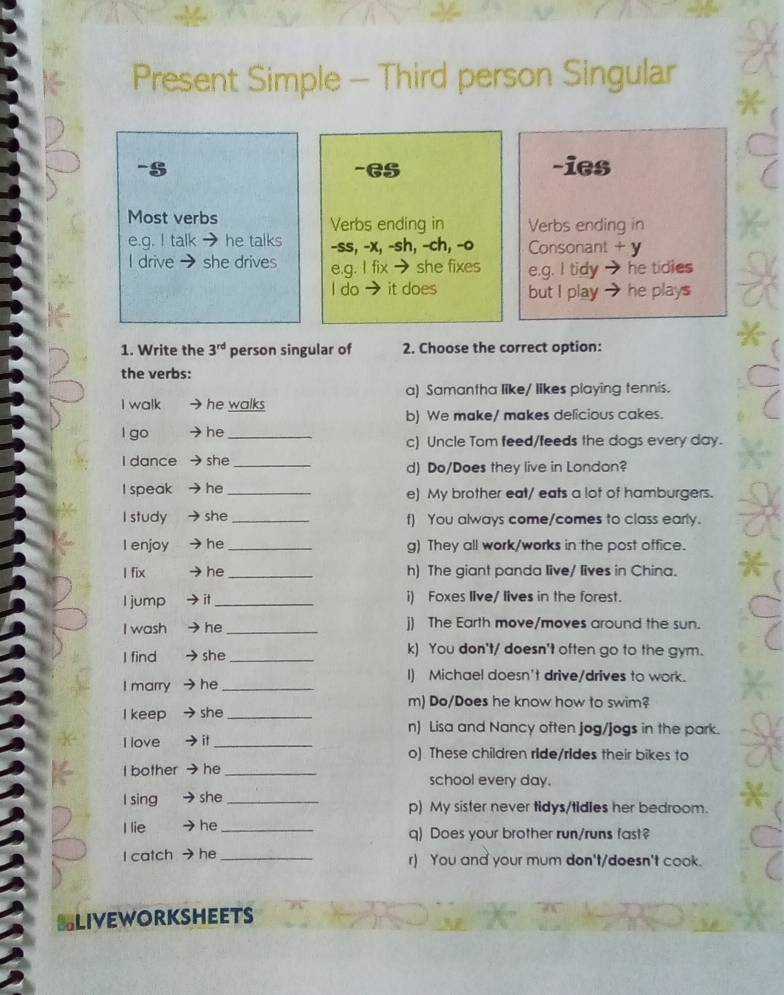 Present Simple – Third person Singular
-s
Most verbs
e.g. I talk → he talks
I drive → she drives
-es
Verbs ending in
-ss, -x, -sh, -ch, -o
e.g. I fix → she fixes
I do → it does
-ies
Verbs ending in
Consonant + y
e.g. I tidy → he tidies
but I play → he plays
1. Write the 3rd person singular of
the verbs:
I walk → he walks
I go → he ________
I dance → she ________
I speak → he ________
I study → she ________
I enjoy → he ________
I fix → he ________
I jump → it ________
I wash → he ________
I find → she ________
I marry → he ________
I keep → she ________
I love → it ________
I bother → he ________
I sing → she ________
I lie → he ________
I catch → he ________
2. Choose the correct option:
a) Samantha like/ likes playing tennis.
b) We make/ makes delicious cakes.
c) Uncle Tom feed/feeds the dogs every day.
d) Do/Does they live in London?
e) My brother eat/ eats a lot of hamburgers.
f) You always come/comes to class early.
g) They all work/works in the post office.
h) The giant panda live/ lives in China.
i) Foxes live/ lives in the forest.
j) The Earth move/moves around the sun.
k) You don't/ doesn't often go to the gym.
l) Michael doesn't drive/drives to work.
m) Do/Does he know how to swim?
n) Lisa and Nancy often jog/jogs in the park.
o) These children ride/rides their bikes to
school every day.
p) My sister never tidys/tidies her bedroom.
q) Does your brother run/runs fast?
r) You and your mum don't/doesn't cook.
LIVEWORKSHEETS